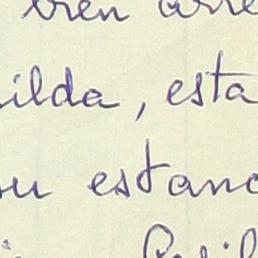 bien arre
ilda, esta
su estanc